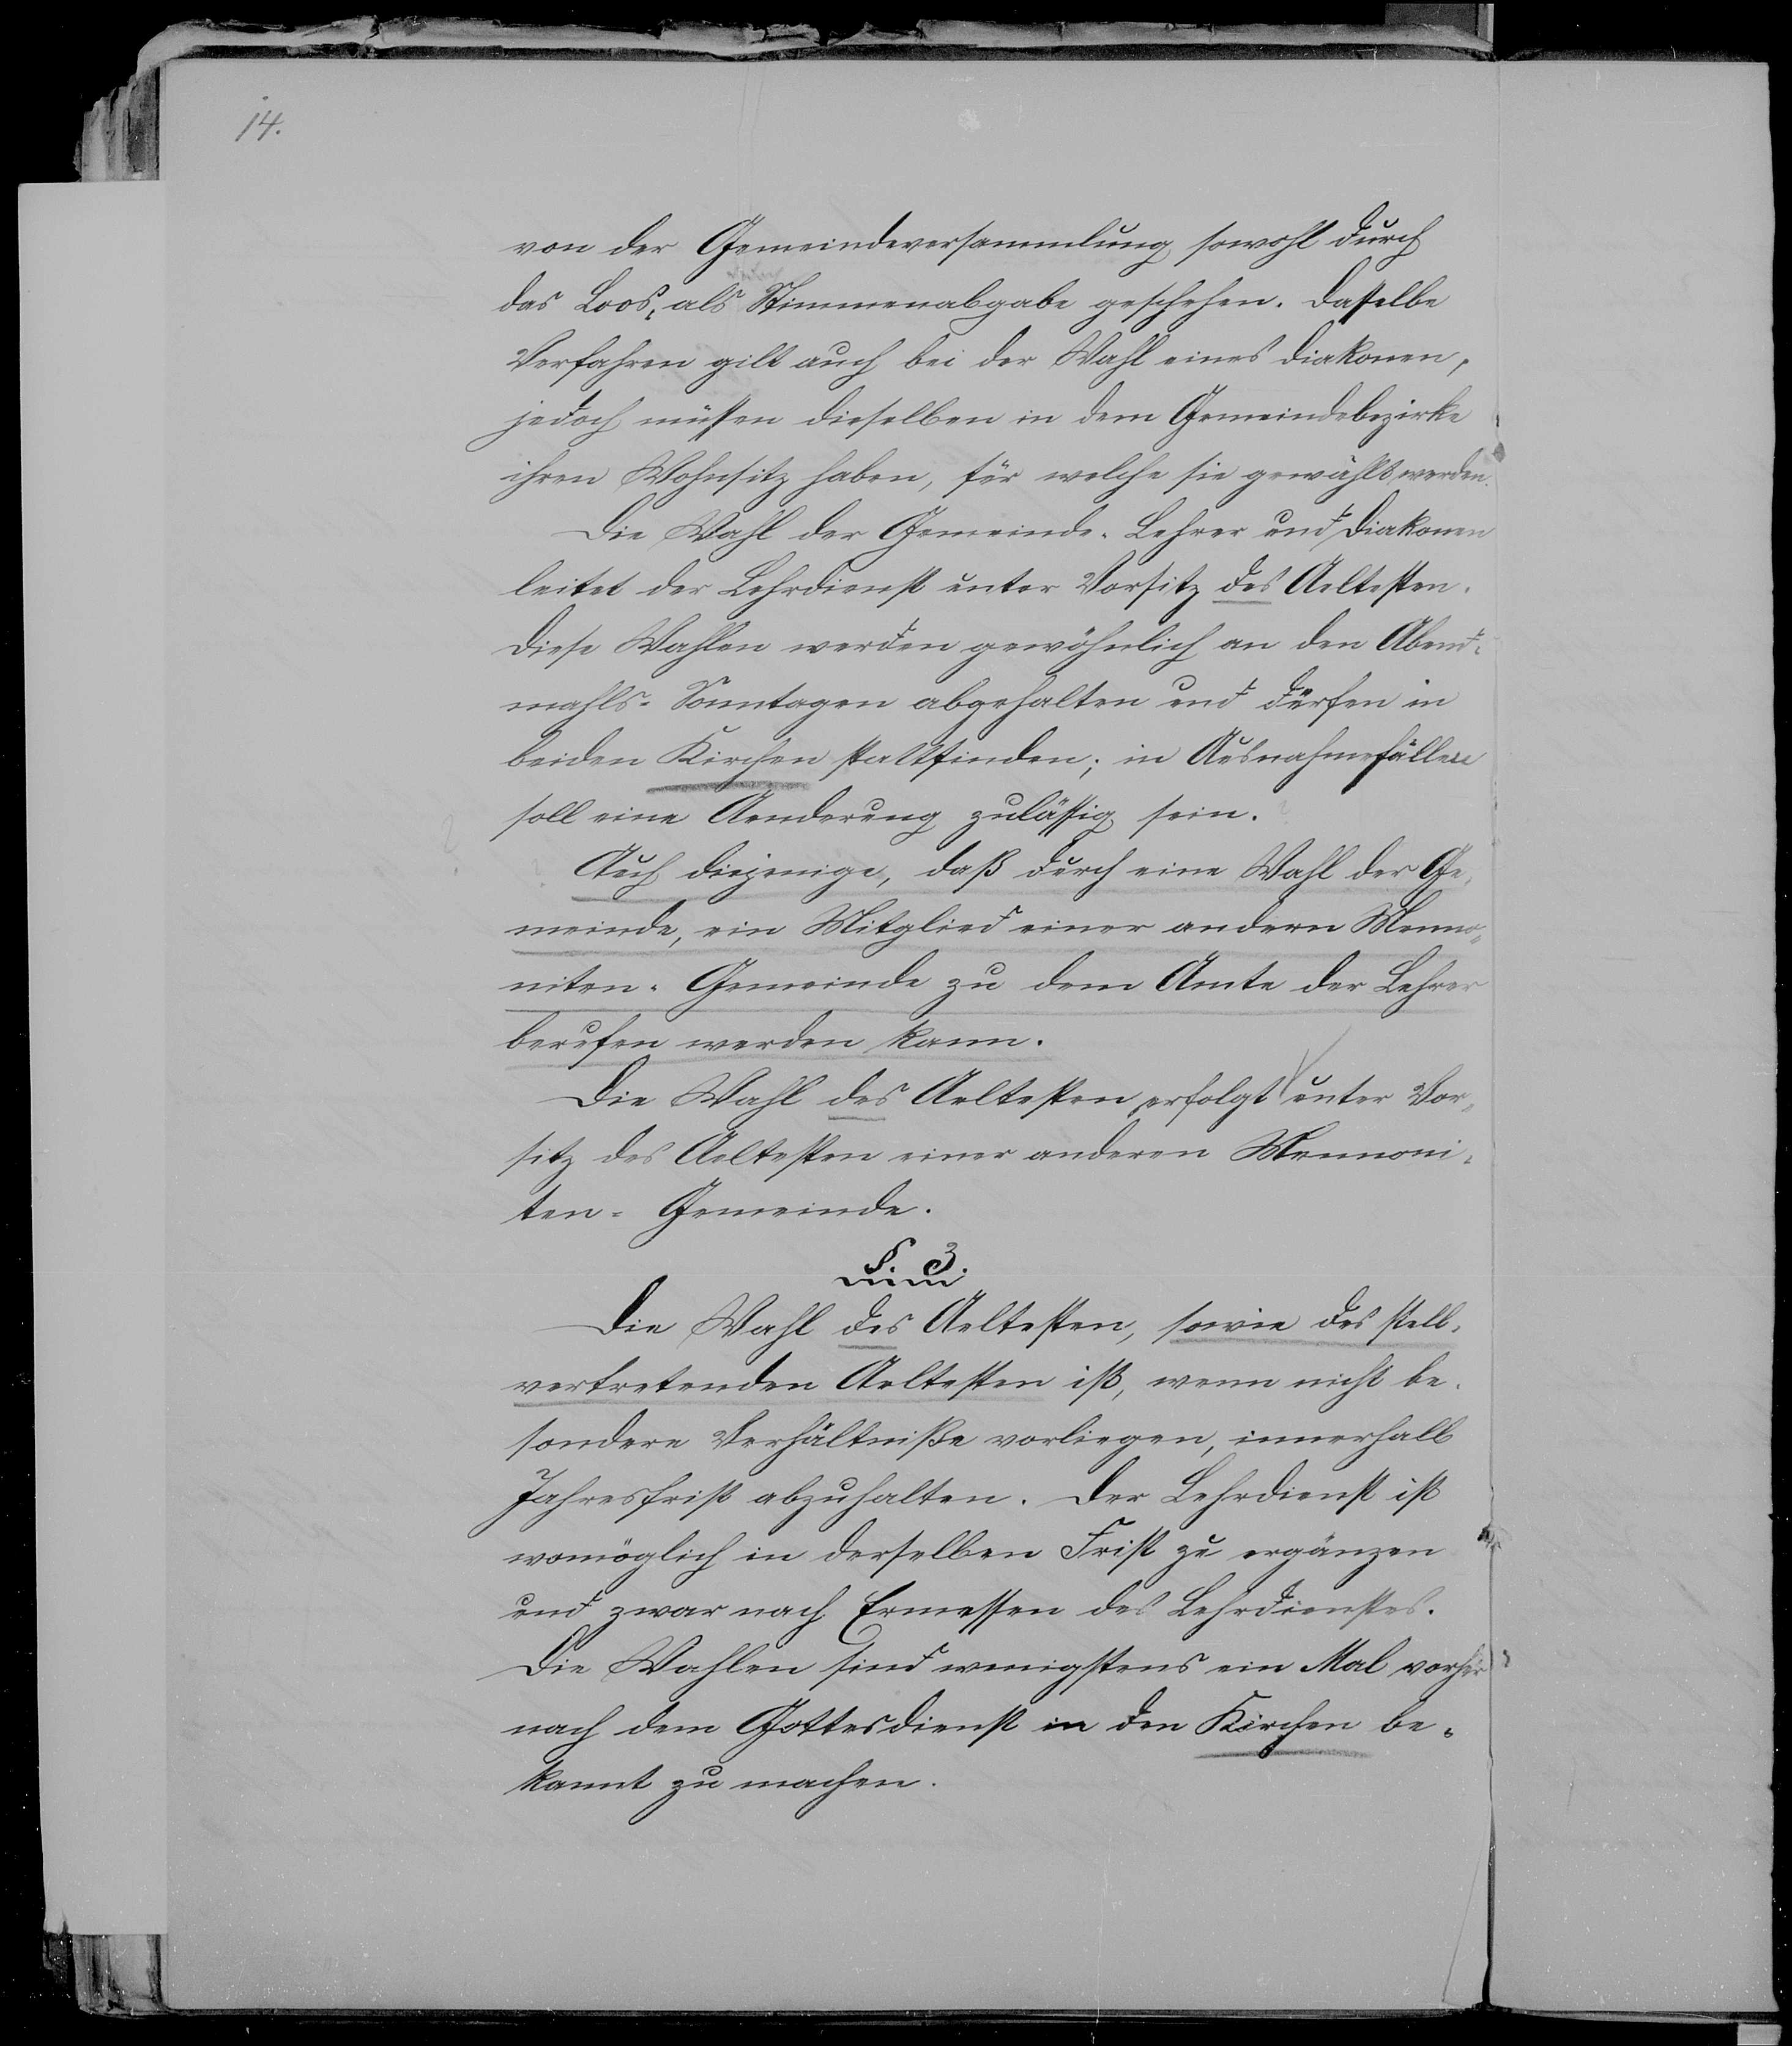 14.
von der Gemeindeversammlung sowohl durch
das Loos, als Stimmenabgabe geschehen. Dasselbe
Verfahren gilt auch bei der Wahl eines Diakonen,
jedoch müssen dieselben in dem Gemeindebezirke
ihren Wohnsitz haben, für welche sie gewählt werden.
Die Wahl der Gemeinde-Lehrer und Diakonen
leitet der Lehrdienst unter Vorsitz des Aeltesten.
Diese Wahlen werden gewöhnlich an den Abend-
mahls-Sonntagen abgehalten und dürfen in
beiden Kirchen stattfinden; in Ausnahmefällen
soll eine Aenderung zulässig sein.
Auch diejenige, daß durch eine Wahl der Ge-
meinde, ein Mitglied einer andern Menno-
niten-Gemeinde zu dem Amte der Lehrer
berufen werden kann.
Die Wahl des Aeltesten erfolgt unter Vor-
sitz des Aeltesten einer anderen Mennoni-
ten-Gemeinde.
§. 3.
Die Wahl des Aeltesten, sowie des stell-
vertretenden Aeltesten ist, wenn nicht be-
sondere Verhältniße vorliegen, innerhalb
Jahresfrist abzuhalten. Der Lehrdienst ist
womöglich in derselben Frist zu ergänzen
und zwar nach Ermessen des Lehrdienstes.
Die Wahlen sind wenigstens ein Mal vorher
nach dem Gottesdienst in den Kirchen be-
kannt zu machen.